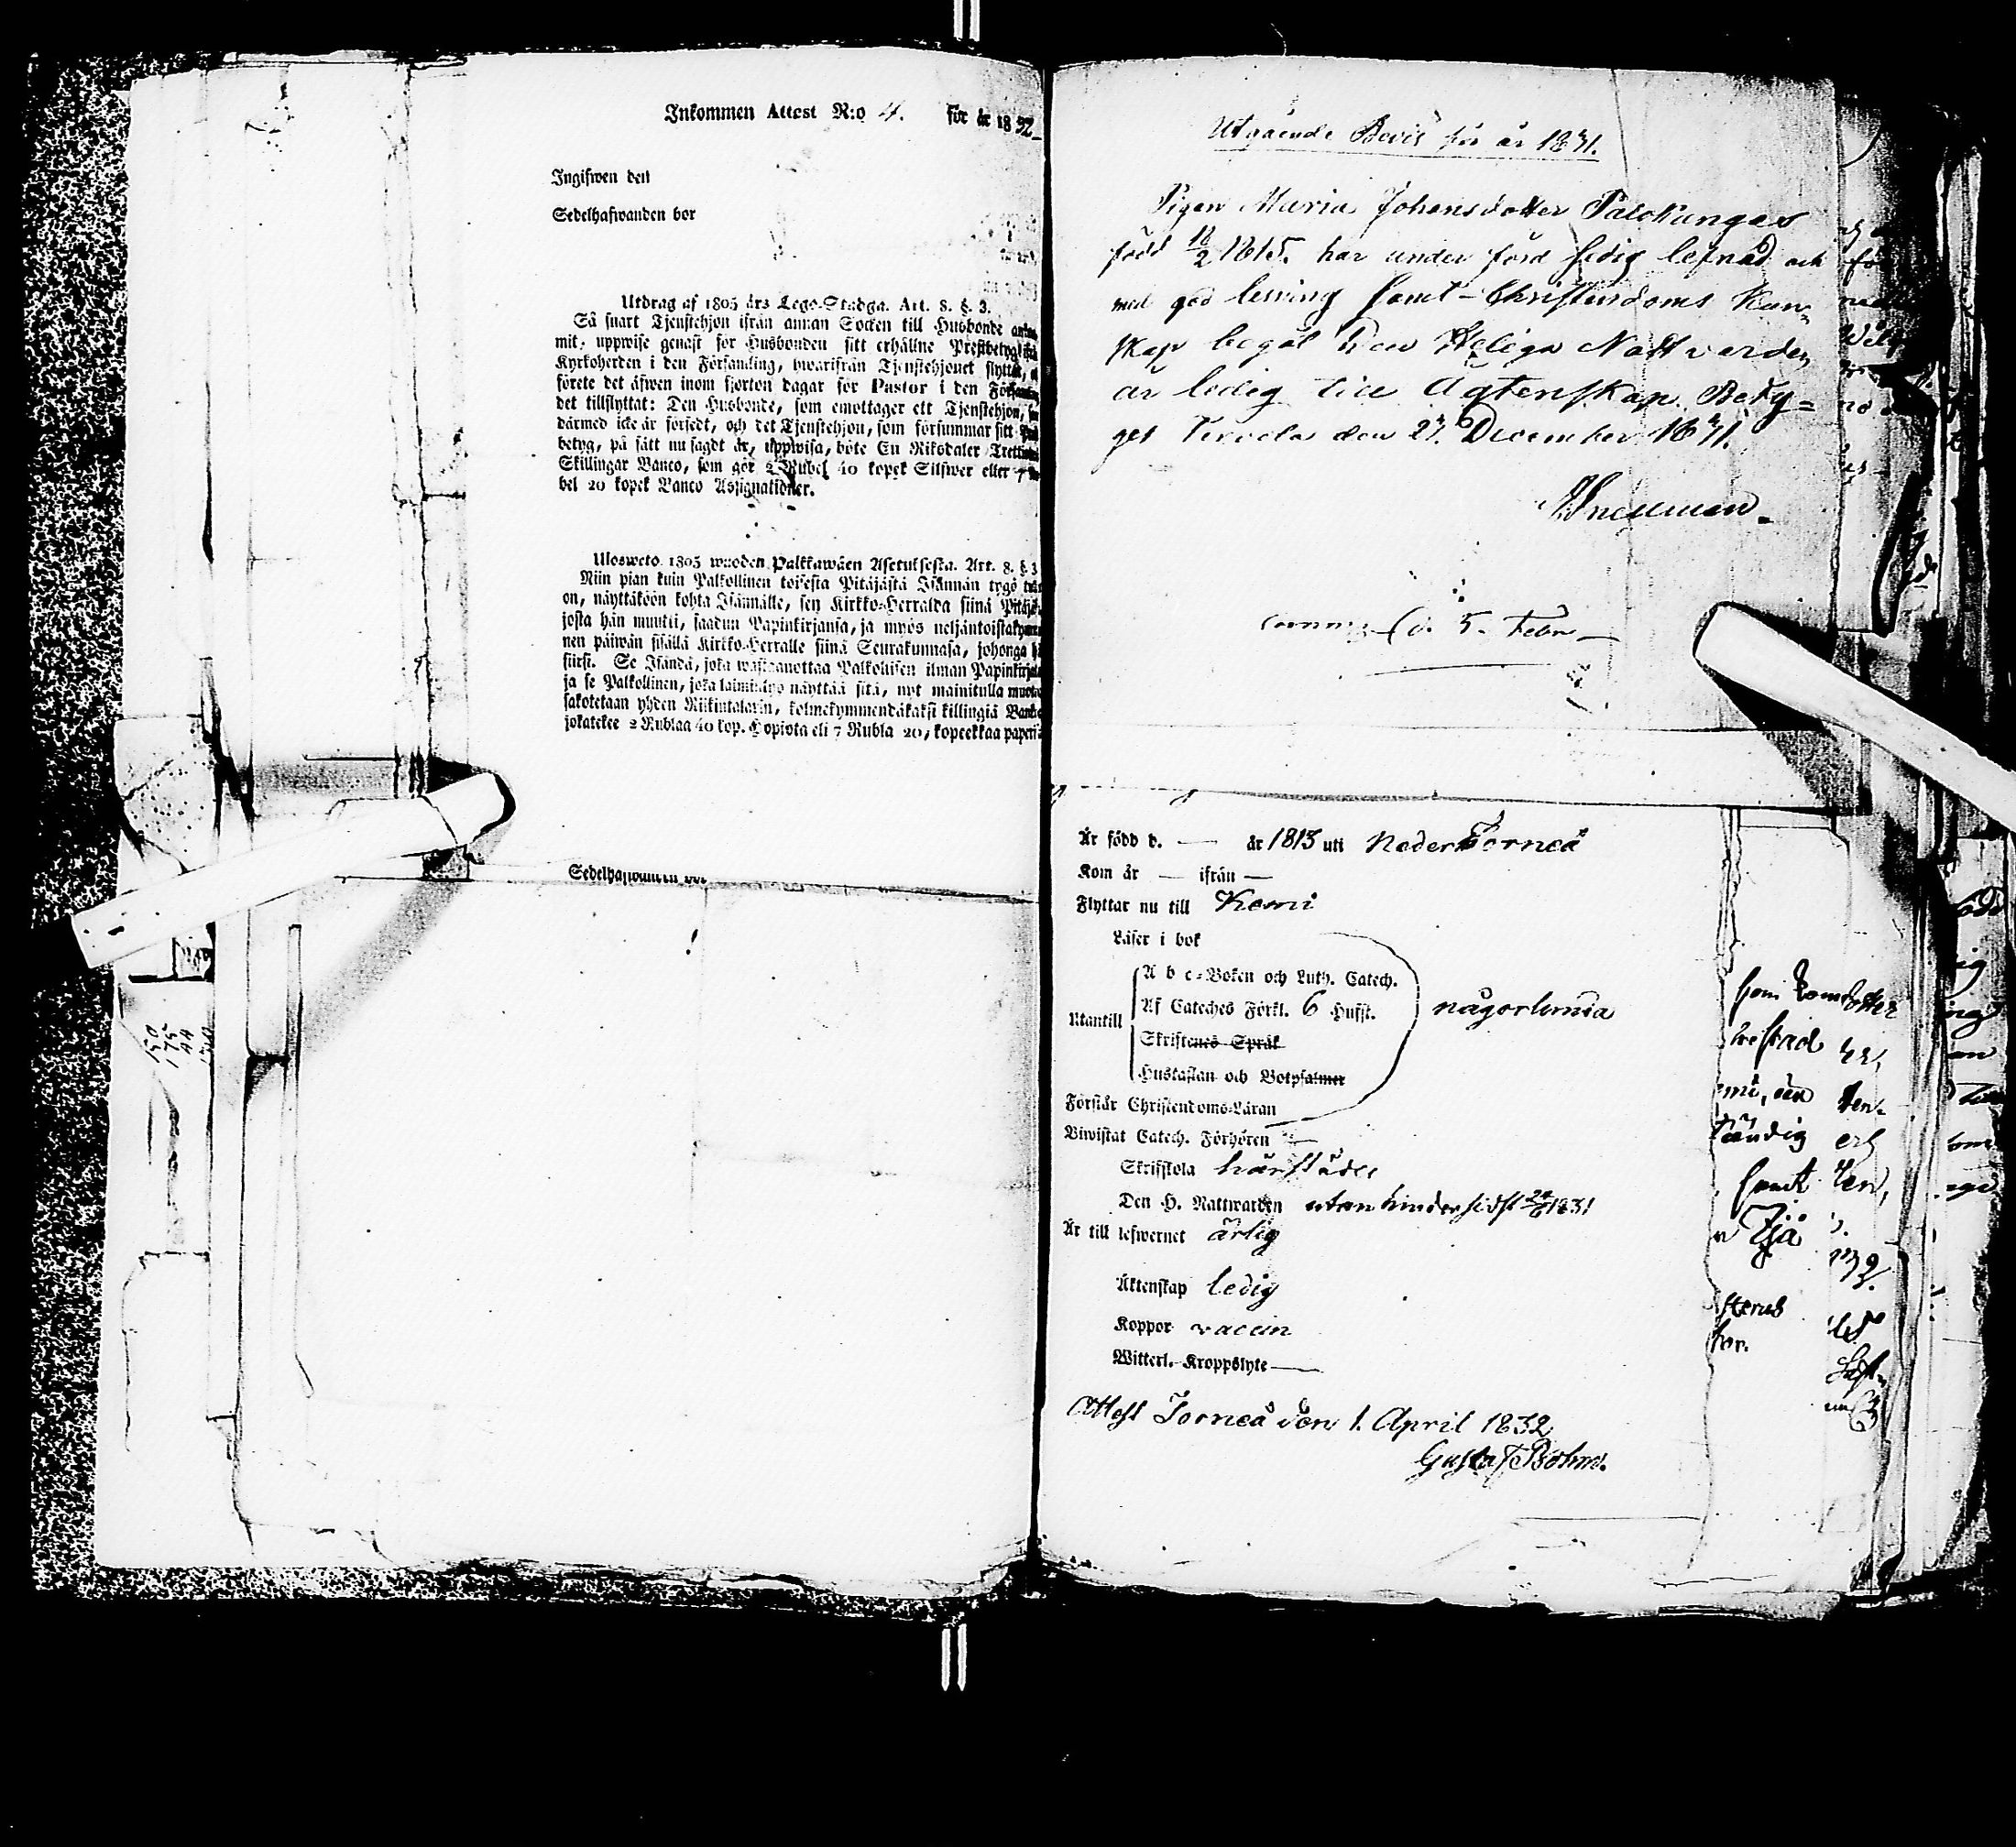 Inkommen Attest N:o 4. för år 1832
Ingifwen den
Sedelhafwanden bor
Utdrag af 1805 års Lego-Stadga. Art. 8. §. 3.
Så snart Tjenstehjon ifrån annan Socken till Husbonde
mit, uppwise genast för Husbonden sitt erhållne Prestbetyg
Kyrkoherden i den Församling, hwarifrån Tjenstehjonet flyttat,
förete det äfwen inom fjorton dagar för Pastor i den
det tillflyttat: Den Husbonde, som emottager ett Tjenstehjon,
därmed icke är försedt, och det Tjenstehjon, som försummar sitt
betyg, på sätt nu sagdt är, uppwisa, böte En Riksdaler
Skillingar Banco, som gör 2 Rubel 40 kopek Silfwer eller 7
bel 20 kopek Banco Assignationer.
Ulosweto 1805 wuoden Palkkawäen Asetuksesta. Art. 8. §. 3
Niin pian kuin Palkollinen toisesta Pitäjästä Isännän tygö
on, näyttäköön kohta Isännälle, sen Kirkko-Herralda siinä
josta hän muutti, saadun Papinkirjansa, ja myös
nen päiwän sisällä Kirkko-Herralle siinä Seurakunnasa, johonga
siirsi. Se Isändä, joka wastaanottaa Palkollisen ilman
ja se Palkollinen, joka laiminlyö näyttää sitä, nyt mainitulla
sakotetaan yhden Riikintalarin, kolmekymmendäkaksi killingiä
jokatekee 2 Rublaa 40 kop. Hopiota eli 7 Rubla 20, kopeekkaa
Sedelhafwanden bor
Utgående Bevis för år 1831.
Pigan Maria Johansdotter Palokangas
född 18/2 1815. har under förd sedig lefnad och
med god läsning samt Christendoms Kun-
skap begåt den Heliga Nattvarden
är ledig till Ägtenskap. Bety=
get Tervola den 27. December 1831.
d. 5. Febr
Är född d. — år 1813 uti Neder Torneå
Kom år — ifrån —
Flyttar nu till Kemi
Läser i bok
A b c-Boken och Luth. Catech.
Utantill Af Cateches Förkl. 6 Hufst. någorlunda
Skriftenes Språk
Hustaflan och Botpsalmer
Förstår Christendoms-Läran
Biwistat Catech. Förhören —
Skriftskola härstädes
Den H. Nattwarden utan hinder sidst 24/6 1831
Är till lefwernet ärlig
Äktenskap ledig
Koppor vaccin
Witterl. Kroppslyte —
Attest Torneå den 1. April 1832
Gustaf Bohm.